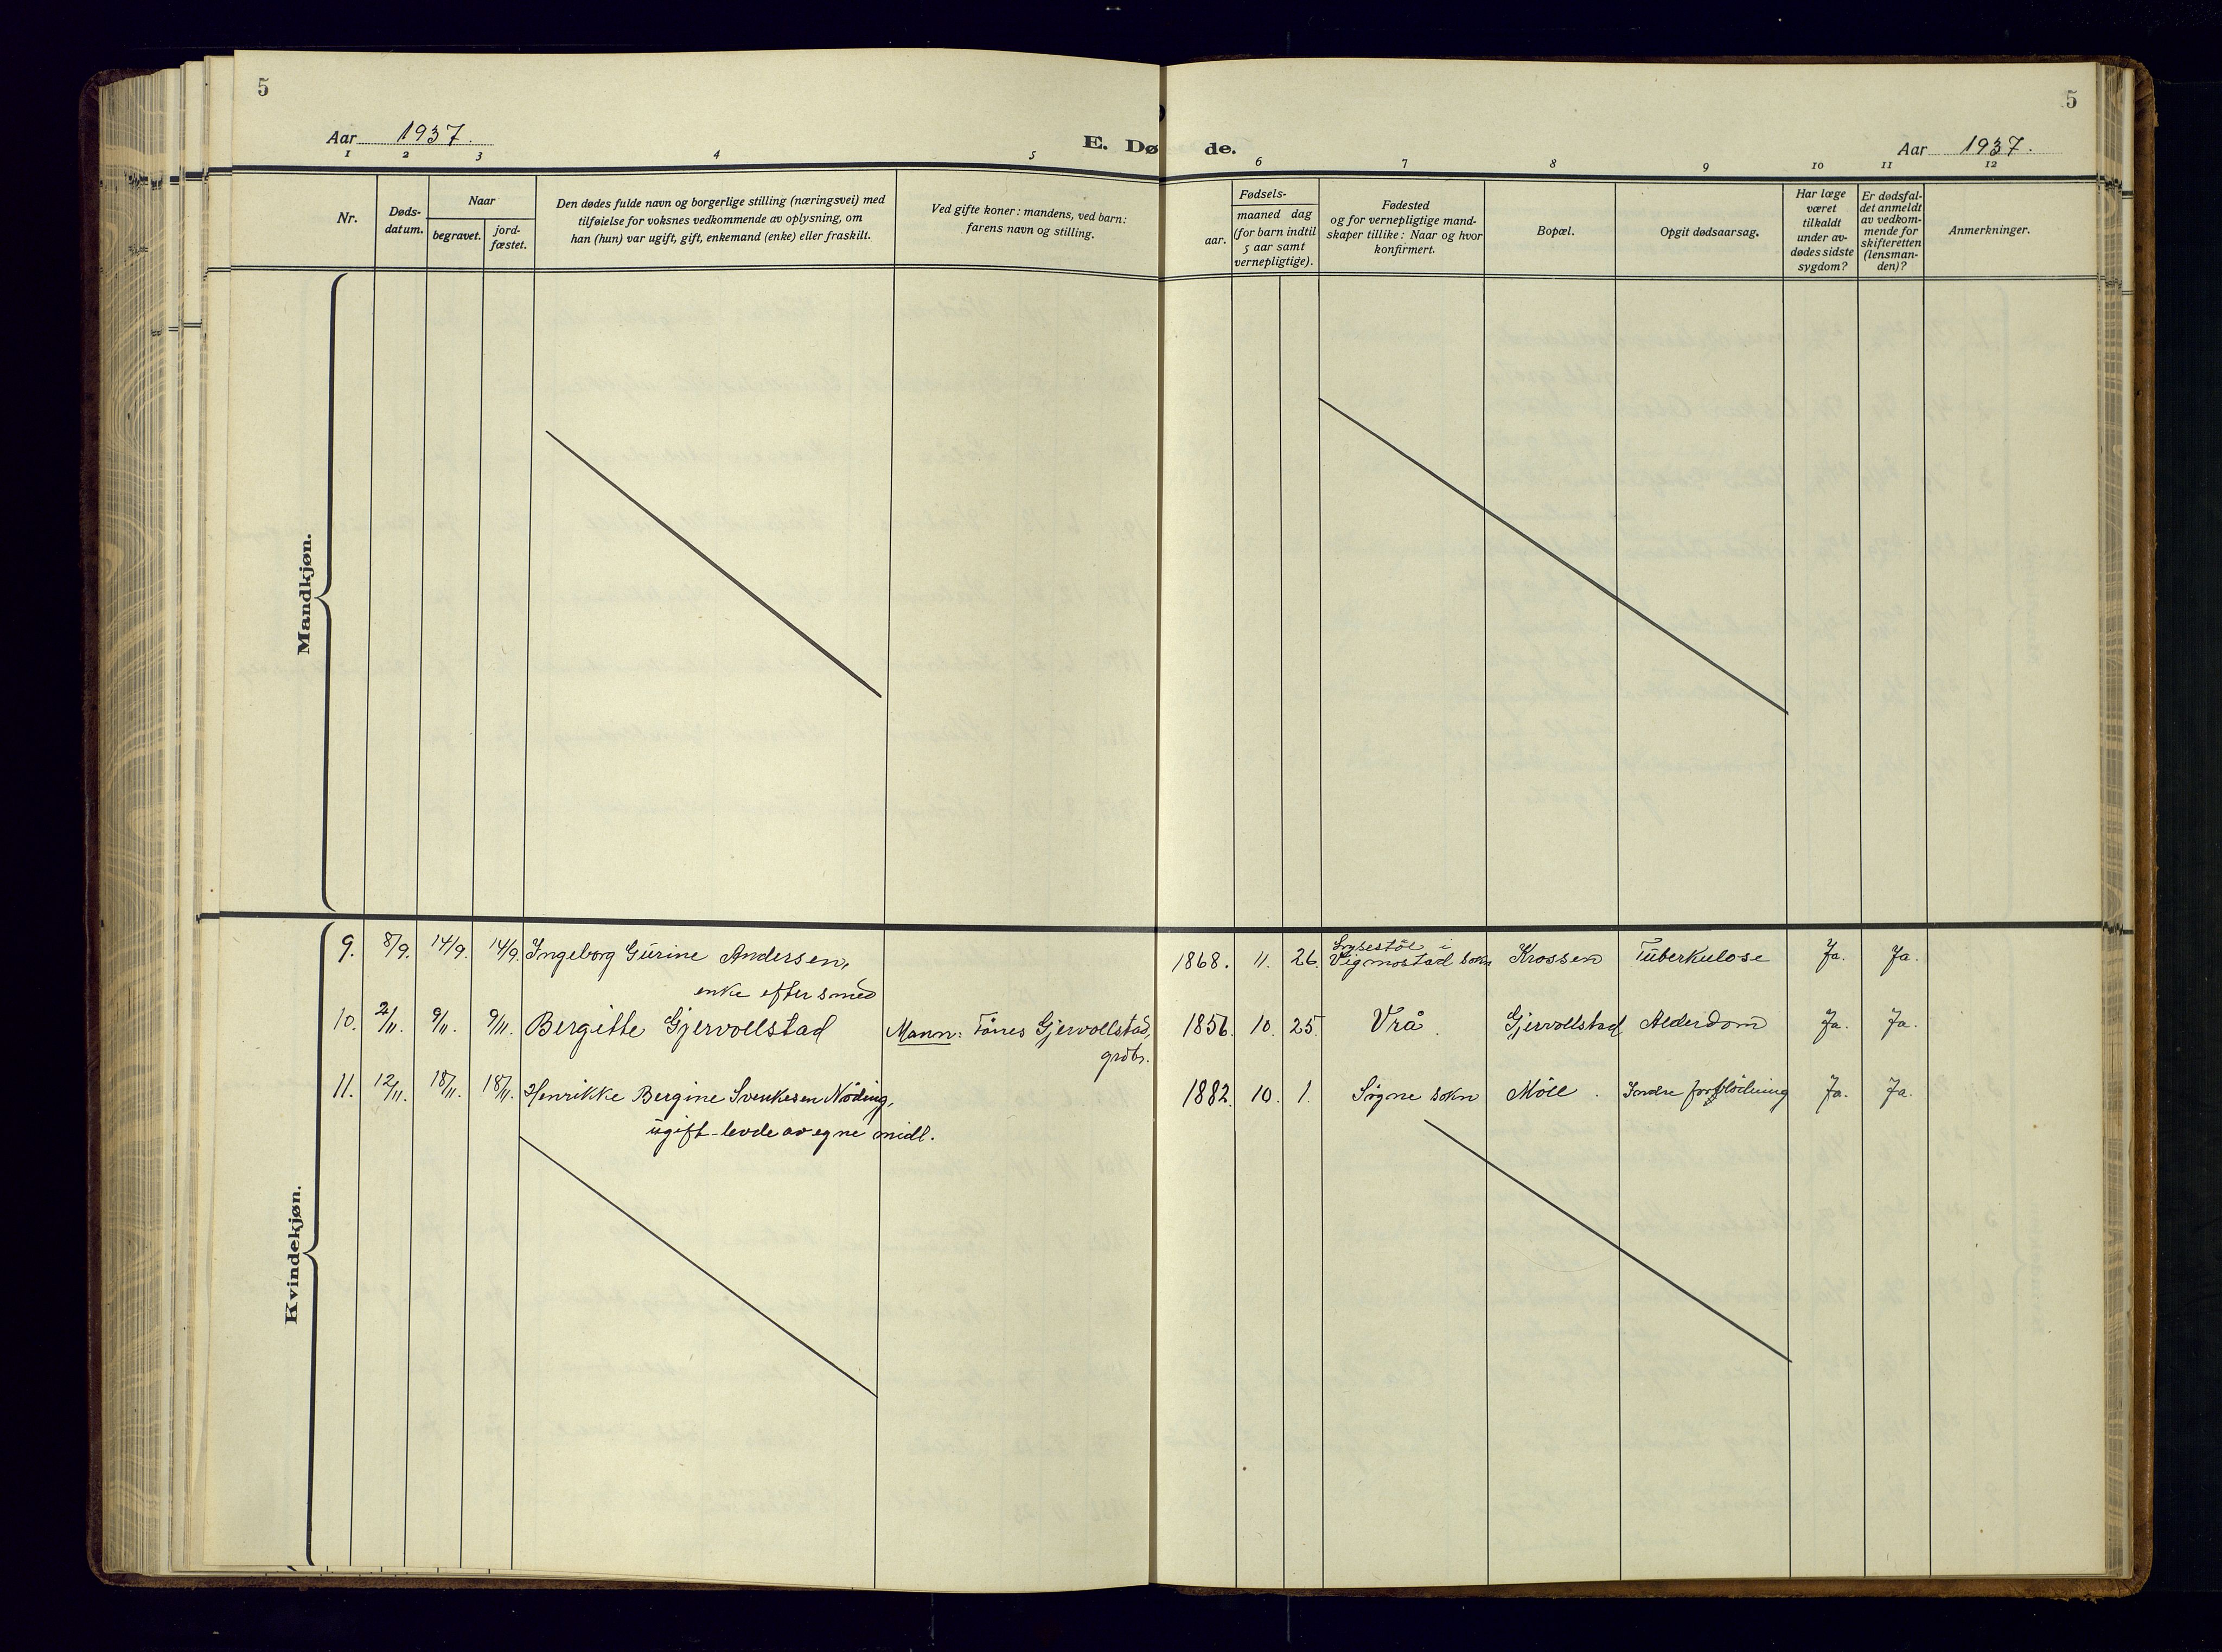 5
5
Aar 1937.
E. Døde.
Aar 1937.
1 2 3 4 5 6 7 8 9 10 11 12
Nr.
Døds-
datum.
Naar
begravet.
jord-
fæstet.
Den dødes fulde navn og borgerlige stilling (næringsvei) med
tilføielse for voksnes vedkommende av oplysning, om
han (hun) var ugift, gift, enkemand (enke) eller fraskilt.
Ved gifte koner: mandens, ved barn:
farens navn og stilling.
aar.
Fødsels-
maaned dag
(for barn indtil
5 aar samt
vernepligtige).
Fødested
og for vernepligtige mand-
skaper tillike: Naar og hvor
konfirmert.
Bopæl.
Opgit dødsaarsag.
Har læge
været
tilkaldt
under av-
dødes sidste
sygdom?
Er dødsfal-
det anmeldt
av vedkom-
mende for
skifteretten
(lensman-
den)?
Anmerkninger.
Mandkjøn.
Kvindekjøn.
9. 8/9. 14/9. 14/9. Ingeborg Gurine Andersen, 1868. 11. 26. i Vigmostad sokn Krossen Tuberkulose Ja. Ja.
enke efter smed
10. 2/11. 9/11. 9/11. Bergitte Gjervollstad Mann: Tønes Gjervollstad, 1856. 10. 25. Vrå. Gjervollstad Alderdom Ja. Ja.
grdbr.
11. 12/11. 18/11. 18/11. Henrikke Bergine Svenkesen Nøding, 1882. 10. 1. Søgne sokn Møll. Indre forblødning Ja. Ja.
ugift - levde av egne midl.